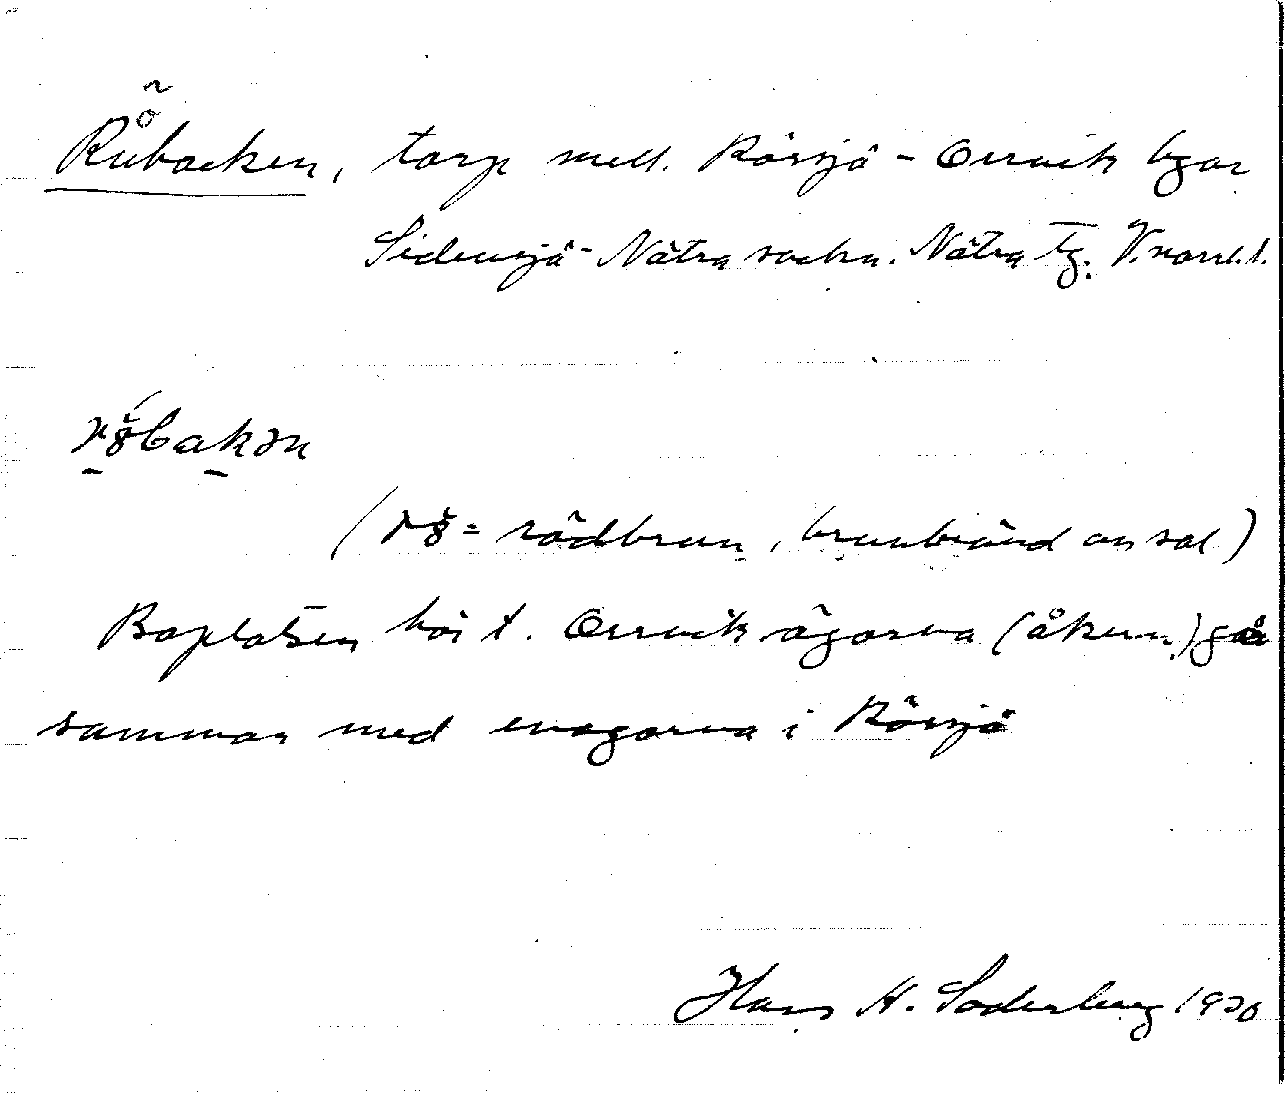 Rübacken, torp mell. Rörsjö - Orrvik byar
Sidensjö - Nätra sockn. Nätra tg. V.norrl.l.
rɞ̆bakən
(rɞ̆ = rödbrun, brunbränd av sol)
Boplatsen hör t. Orrvik ägorna (åkern) går
samman med inägorna i Rörsjö
Hans H. Söderberg 1920